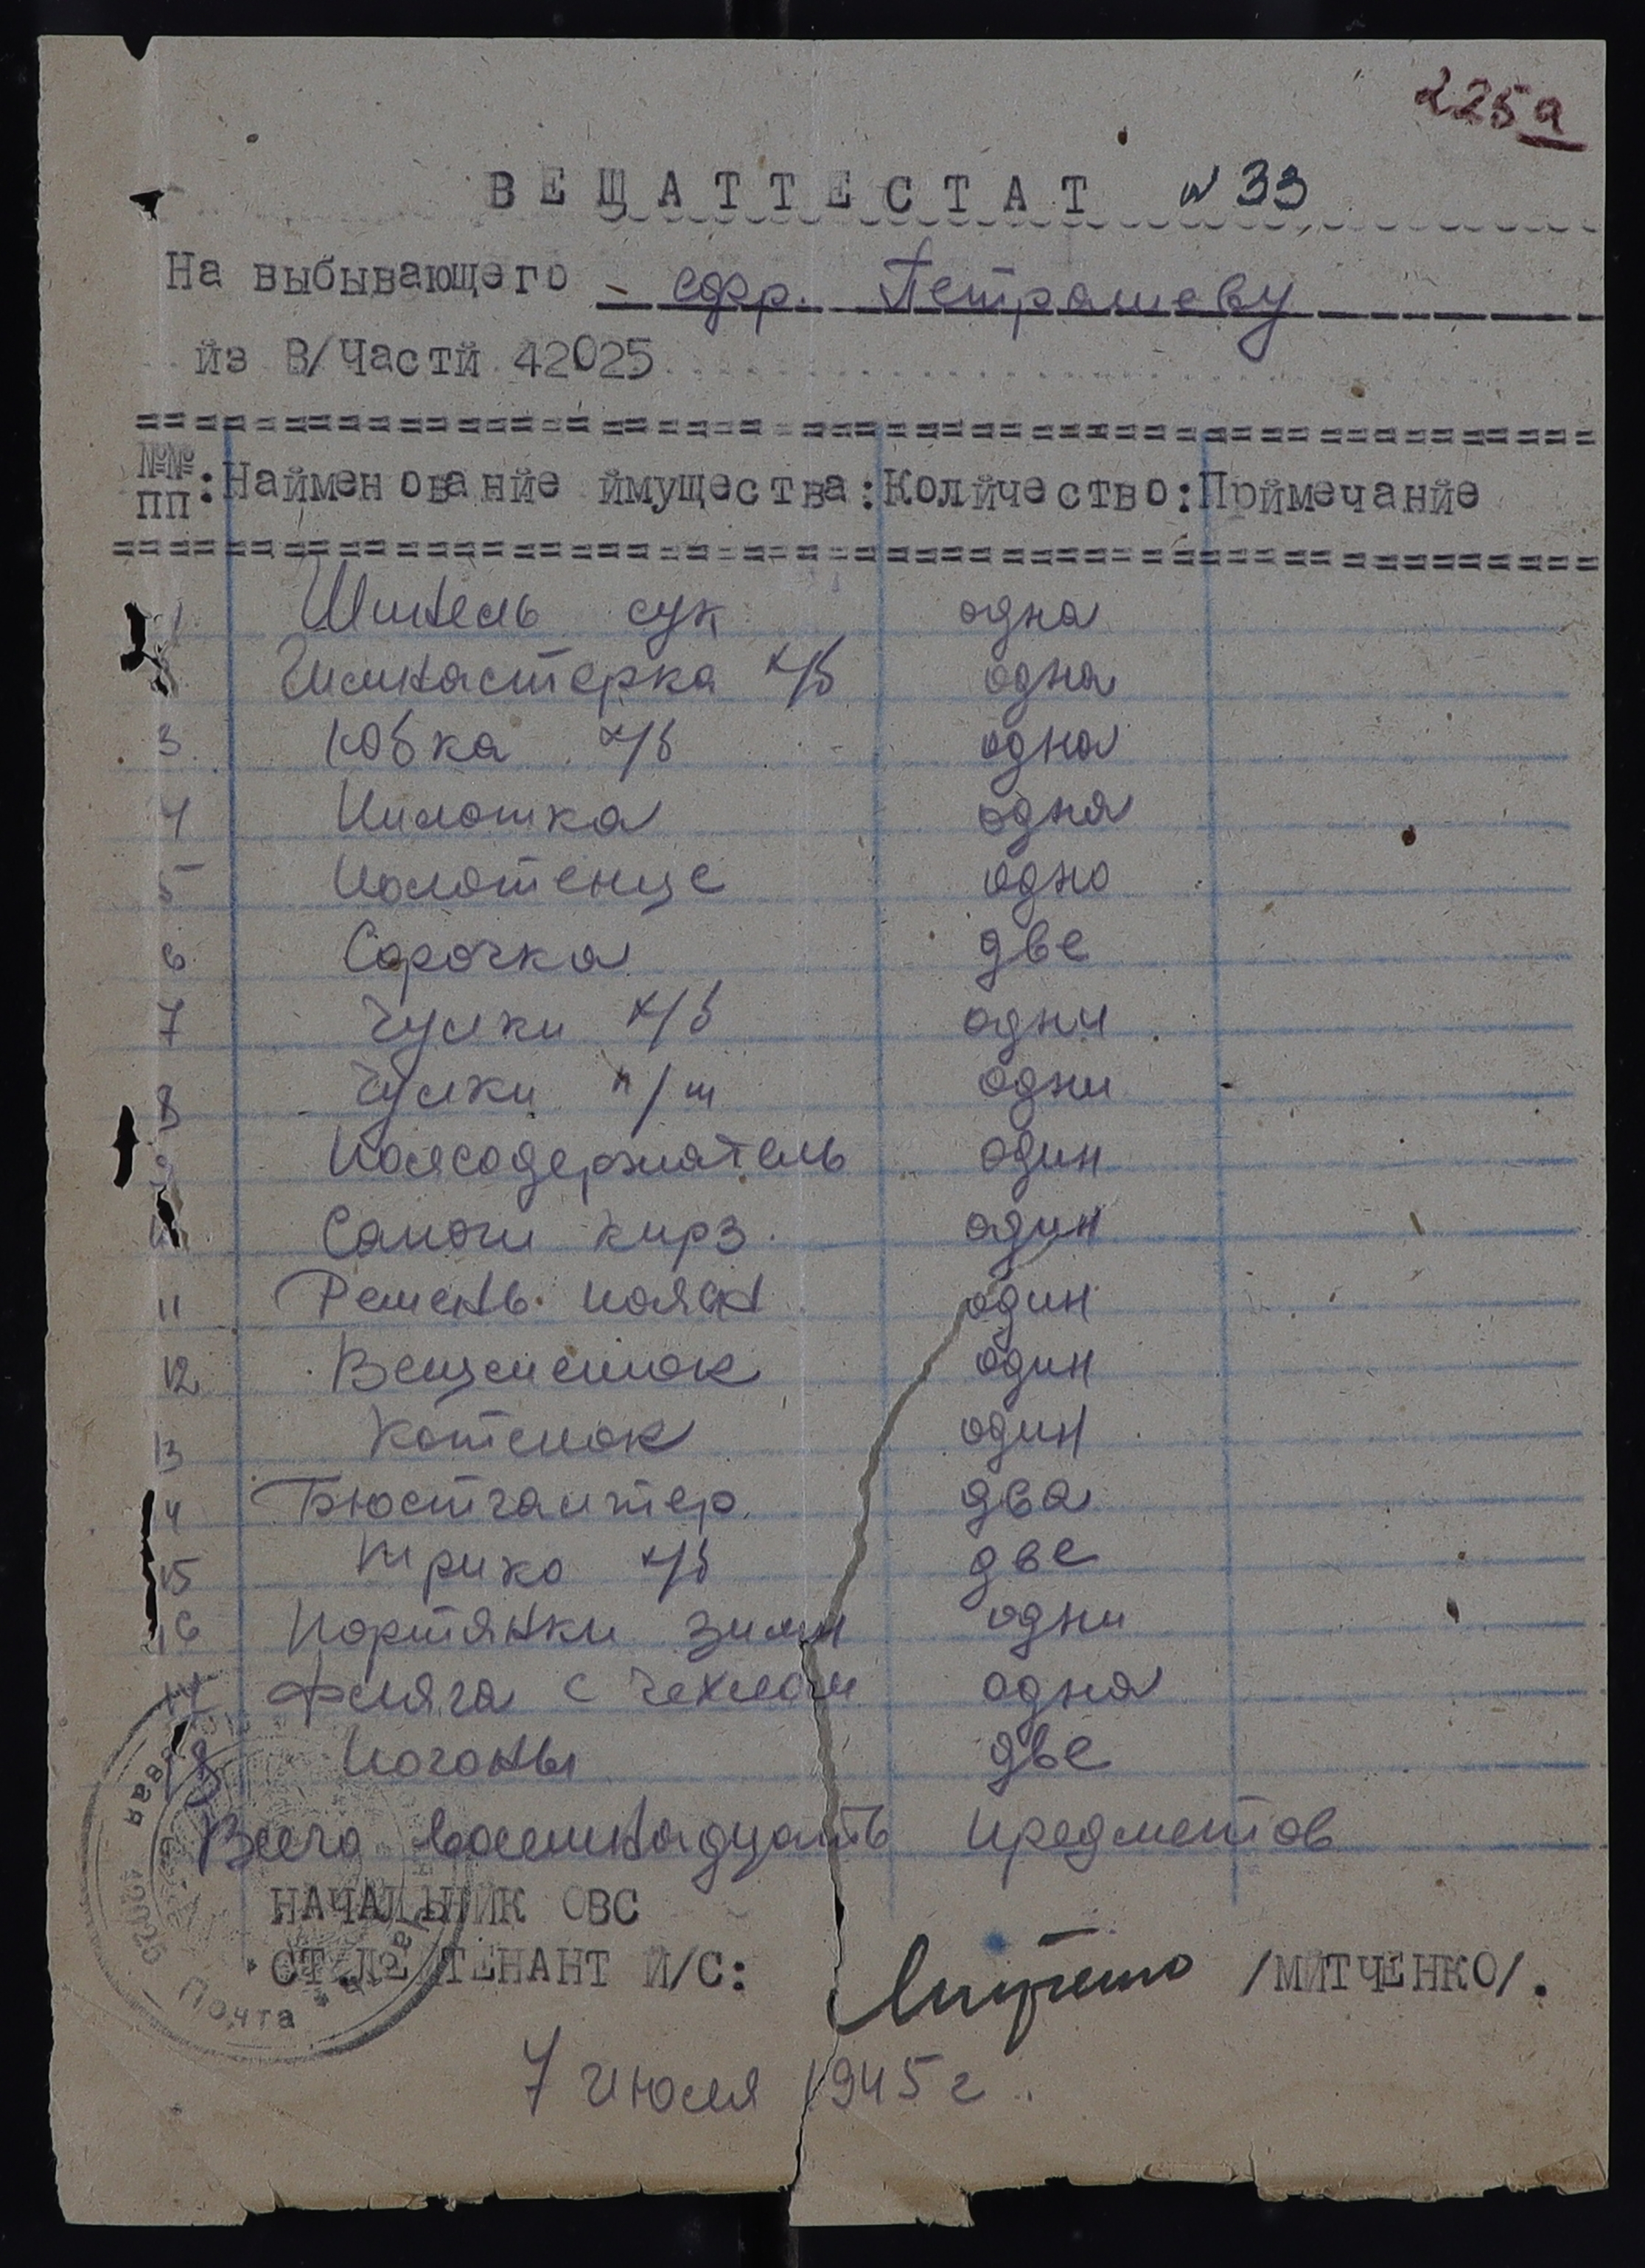 225а
ВЕЩАТТЕСТАТ № 33
На выбывающего - ефр. Петрашеву
йз В/Частй 42025
№№ пп : Найменованйе ймущества : Колйчество : Прймечанйе
1 Шинель сук одна
Гимнастерка х/б одна
3 Юбка х/б одна
4 Пилотка одна
5 Полотенце одно
6 Сорочка две
7 Чулки х/б одни
8 Чулки п/ш одни
9 Поясодержатель один
10 Сапоги кирз. один
11 Ремень поясн один
12 Вещмешок один
13 Котелок один
14 Бюстгалтер. два
15 Трико х/б две
16 Портянки зимн одни
17 Фляга с чехлом одна
18 Погоны две
Всего восемнадцать предметов
НАЧАЛЬНИК ОВС
СТ.ЛЕЙТЕНАНТ Й/С: /МЙТЧЕНКО/.
Почта
7 июля 1945 г.